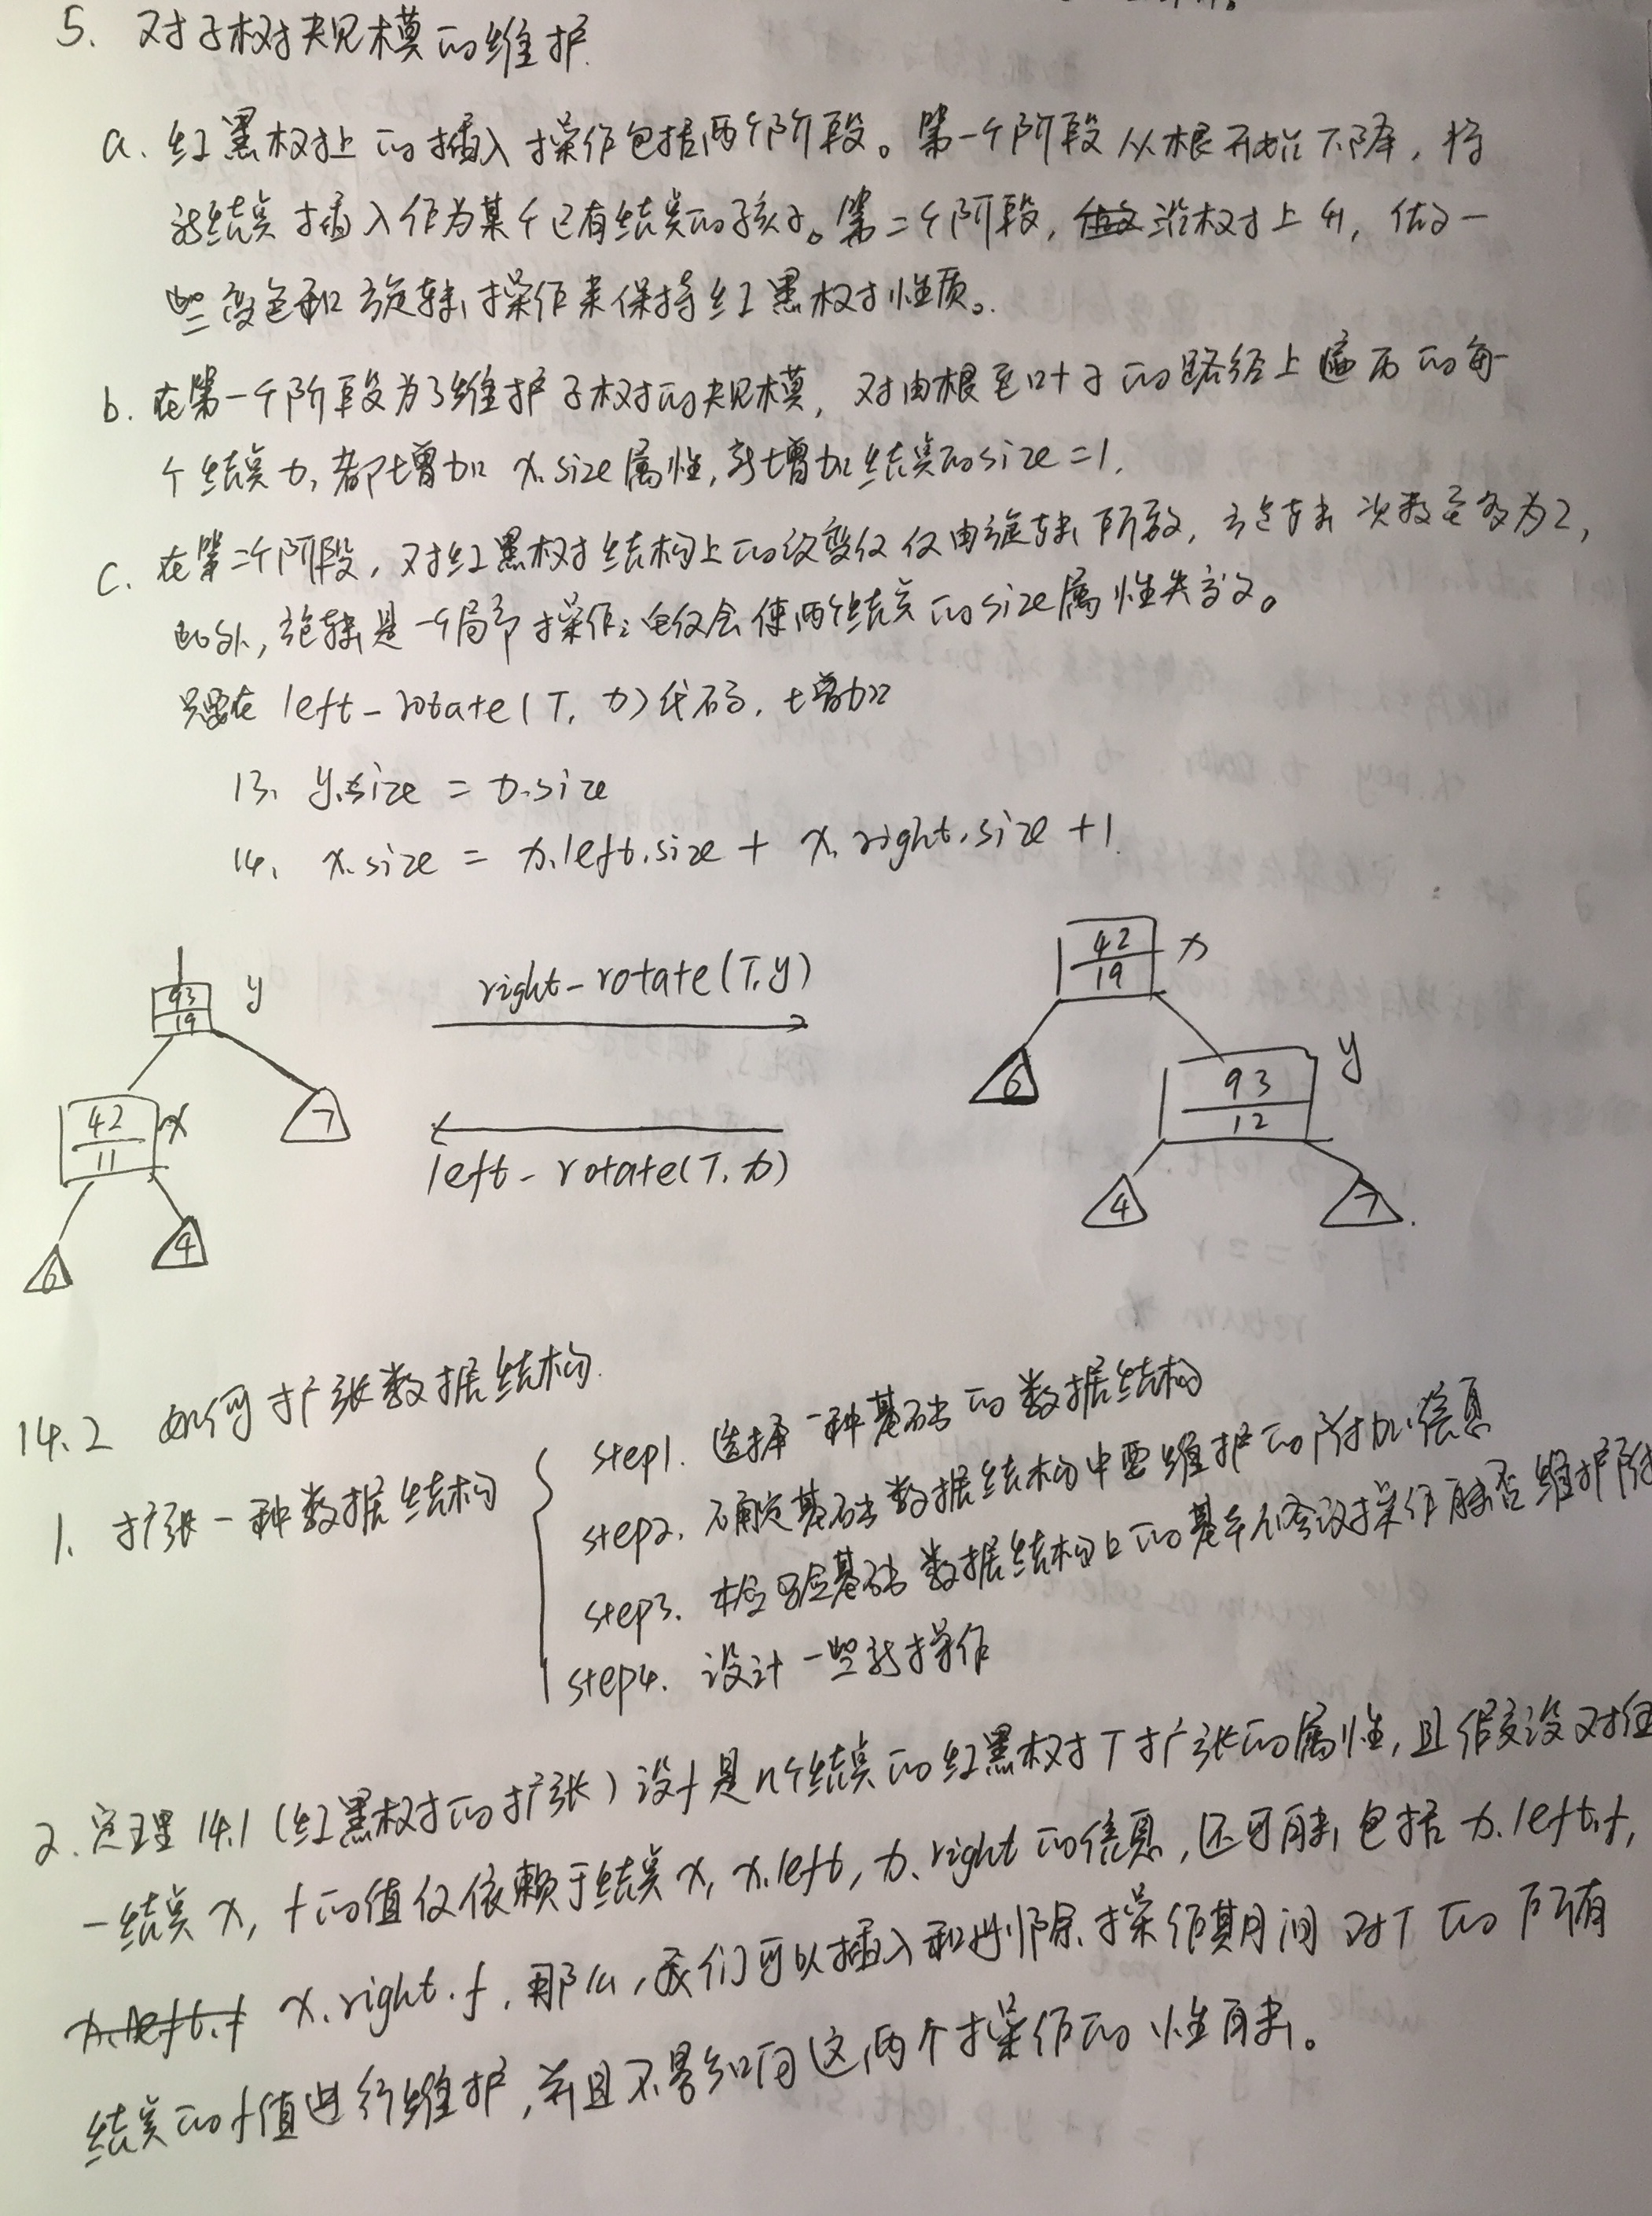 5. 对子树规模的维护.
a. 红黑树上的插入操作包括两个阶段。第一个阶段从根开始下降，将
新结点插入作为某个已有结点的孩子。第二个阶段，沿树上升，做一
些变色和旋转操作来保持红黑树性质。
b. 在第一个阶段为了维护子树的规模，对由根至叶子的路径上遍历的每
个结点x,都增加 x.size属性,新增加结点的size=1.
c. 在第二个阶段，对红黑树结构上的改变仅仅由旋转所致，旋转次数至多为2，
此外，旋转是一个局部操作：它仅会使两个结点的size属性失效。
只要在 left-rotate(T, x)代码，增加
13. y.size = x.size
14. x.size = x.left.size + x.right.size +1.
93
19
y
42
11
x
6
4
7
right-rotate(T,y)
left-rotate(T,x)
42
19
x
6
93
12
y
4
7
14.2 如何扩张数据结构.
1. 扩张一种数据结构
step1. 选择一种基础的数据结构
step2. 确定基础数据结构中要维护的附加信息
step3. 检验基础数据结构上的基本修改操作能否维护附
step4. 设计一些新操作
2. 定理14.1 (红黑树的扩张) 设f是n个结点的红黑树T扩张的属性，且假设对任
一结点x, f的值仅依赖于结点x, x.left, x.right的信息，还可能包括x.left.f,
x.left.f x.right.f. 那么，我们可以插入和删除操作期间对T的所有
结点的f值进行维护，并且不影响这两个操作的性能。